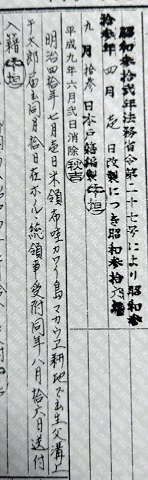 昭和参拾弐年法務省令第二十七号により昭和
参拾参年四月壱日改製につき昭和参拾六年
九月拾参日本戸籍編製㊞牛垣
平成九年六月弐日消除 秋吉
明治四拾年七月壱日米領布哇カワイ島マカウエリ耕地で出生父溝上
平太郎届出同月拾日在ホノルル総領事受附同年八月拾六日送付
入籍